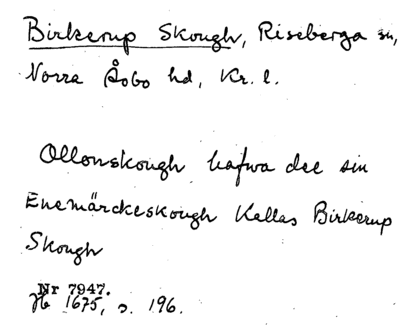 Birkerup Skough, Riseberga sn,
Norra Åsbo hd, Kr. l.
Ollonskough hafwa dee sin
Enemärckeskough Kallas Birkerup
Skough
Nr 7947.
Jb 1675, s. 196.